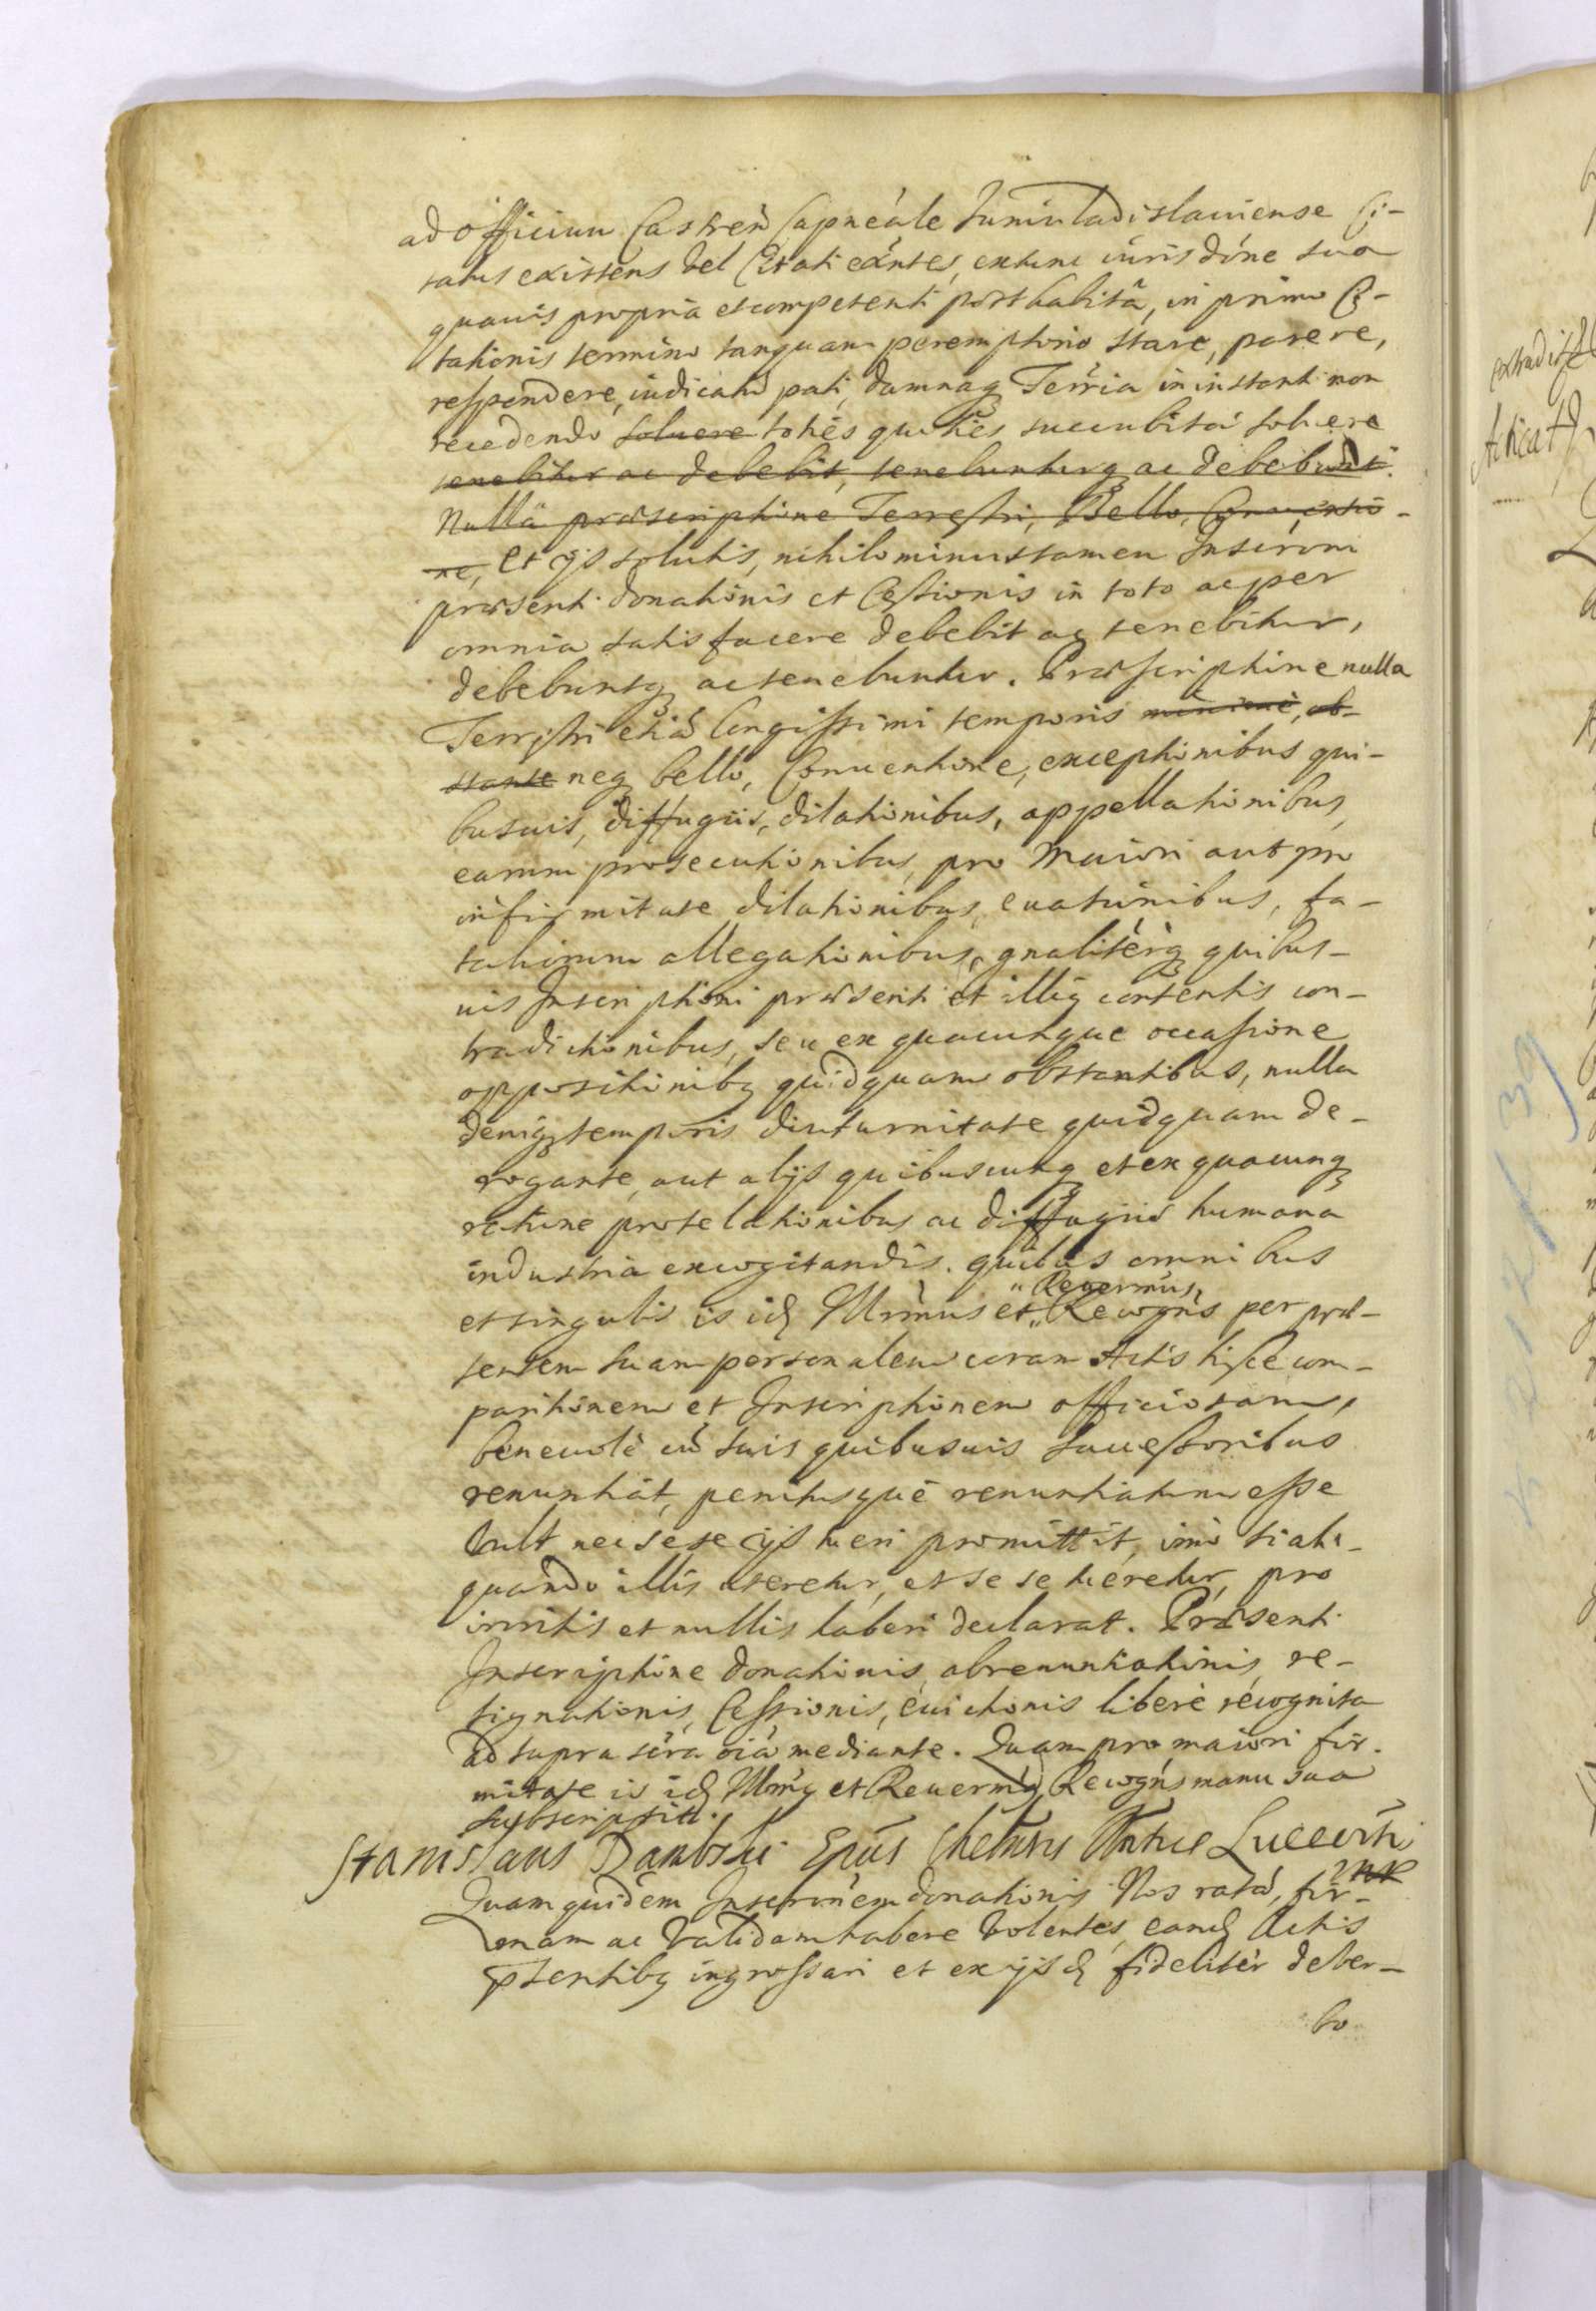 ad officium Castren Capneále Juniuladislauiense Ci-
tatus existens vel Citati exántes, extunc iurisdóne sua
quauis propria et competenti posthabitâ, in primo Ci-
tationis termino tanquam peremptorio stare, parere,
respondere, iudicatũ pati, damnaq Terr̃ia in instanti non
recedendo soluere totiés quotiés succubitá soluere
tenebitur ac debebit, tenebunturq ac debebunt.
Nullâ præscriptione Terrestri, Bello, Conuentio-
ne, Et ijs solutis, nihilominus tamen Inscrõni
præsenti donationis et Cessionis in toto ac per
omnia satisfacere debebit aq tenebitur,
debebuntq ac tenebuntur. Præscriptione nulla
Terrestri etiã longissimi temporis minime, ob-
stante neq bello, Conuentione, exceptionibus qui-
busuis, diffugiis, dilationibus, appellationibus,
earum prosecutionibus, pro maiori aut pro
infirmitate dilationibus, euasionibus, fa-
talium allegationibus, gnalitérq quibus-
uis Inscriptioni præsenti et illiq contentis con-
tradictionibus, seu ex quacunque occasione
oppositionibq quidquam obstantibus, nulla
deniq temporis diuturnitate quidquam de-
rogante, aut alijs quibuscunq et ex quacunq
ratione protelationibus ac diffugiis humana
industria excogitandis. quibus omnibus
" Reuermus,
et singulis is idq Illrimus et " Recogns per præ-
sentem suam personalem coram Actis hisce com-
paritionem et Inscriptionem officiosam,
beneuolè cũ suis quibusuis successoribus
renuntiát, penitusquè renuntiatum esse
vult nec sese ijs tueri promittit, imò si ali-
quando illis uteretur, et se se tuéretur, pro
irritis et nullis haberi declarat. Præsenti
Inscriptione donationis, abrenuntiationis, re-
signationis, Cessionis, éuictionis liberè récognita
ad supra scra oiá mediante. Quam pro maiori fir-
mitate is idq Illrmq et Reuermq Recogns manu sua
subscripsit.
Stanislaus Dambski Epus Chelmns Luceoriẽ
Quam quidem Inscronem donationis Nos ratã, fir-
mam ac validam habere volentes, eandq Actis
pntentibq ingrossari et ex ijsdq fidelitér de ver-
bo
extradiss